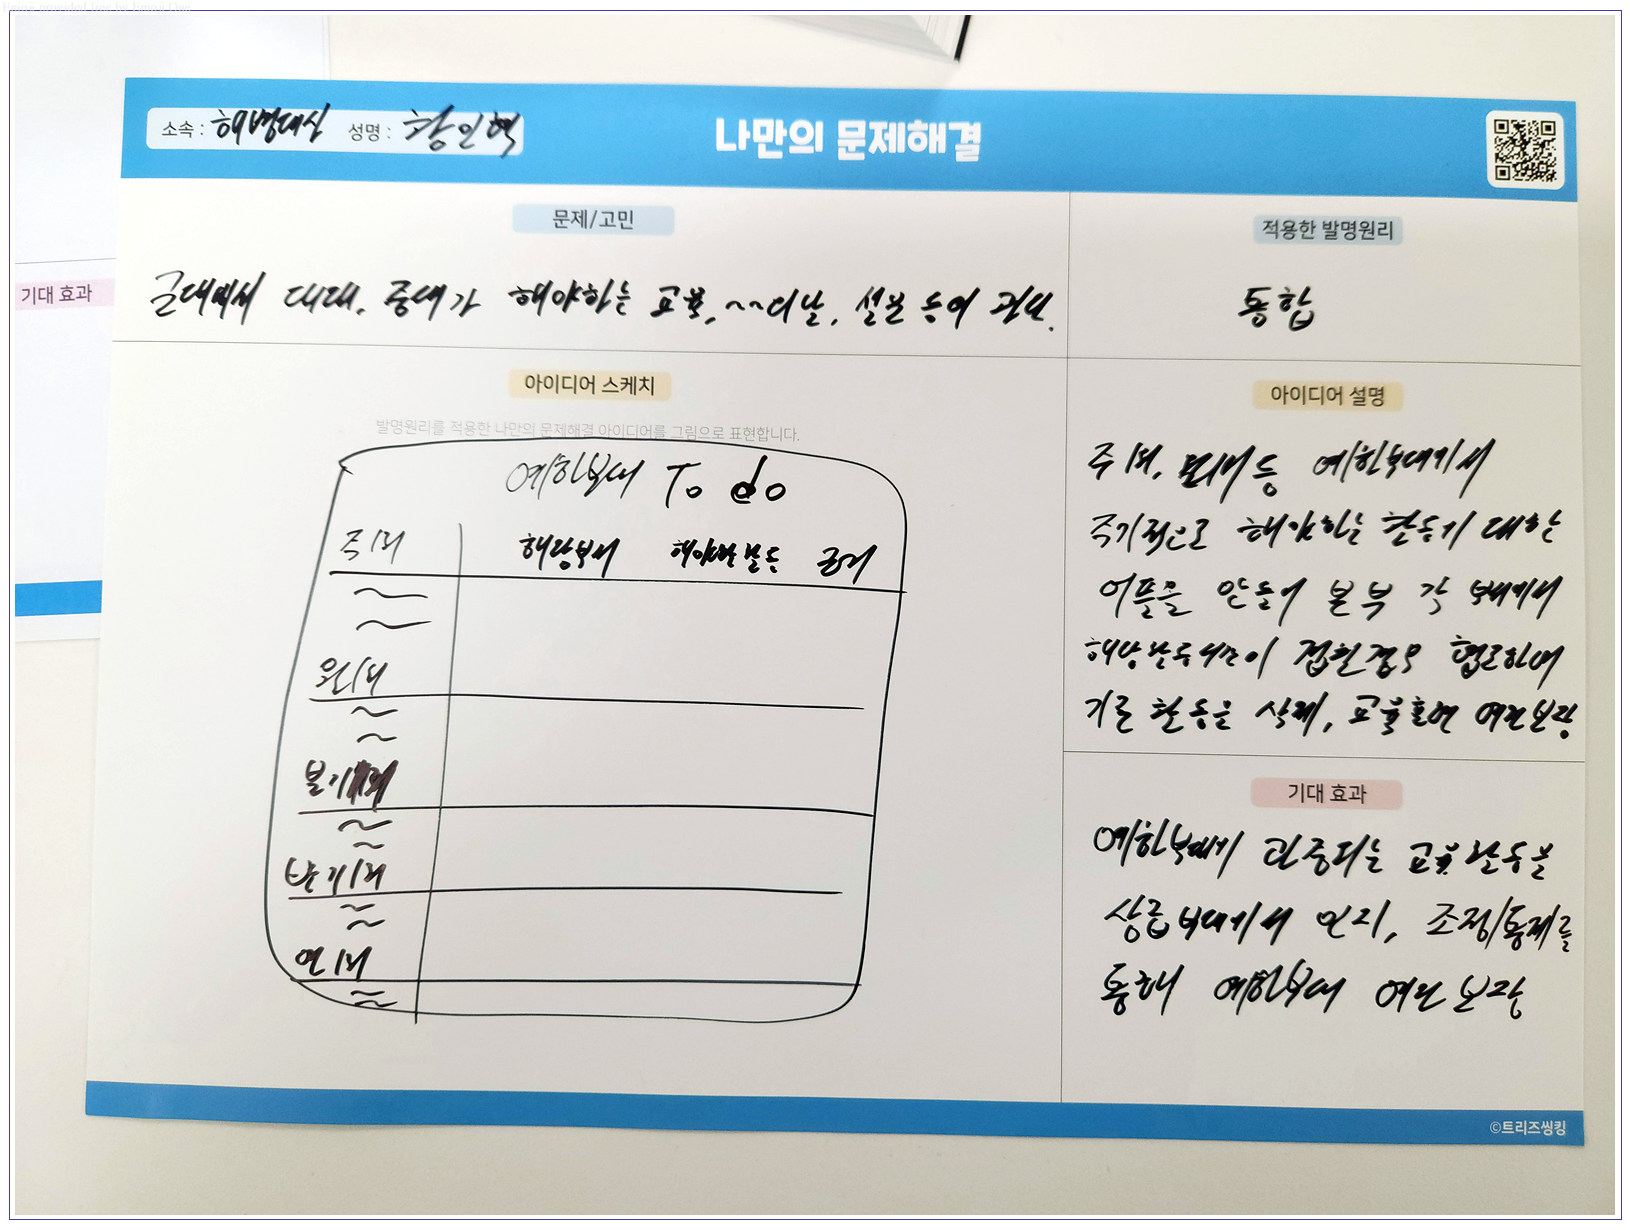 소속 : 해병대심 성명 : 황인혁
나만의 문제해결
문제/고민
군대에서 대대, 중대가 해야하는 교육, ~~의날, 설문 등이 과다.
적용한 발명원리
통합
기대 효과
아이디어 스케치
발명원리를 적용한 나만의 문제해결 아이디어를 그림으로 표현합니다.
예하부대 To do
주1회 해당부서 해야할 활동 근거
월1회
분기1회
반기1회
연1회
아이디어 설명
주1회, 등 예하부대에서
주기적으로 해야하는 활동에 대한
어플을 만들어 본부 각 부대에서
해당활동내용이 겹친경우 협조하여
기존 활동을 삭제, 교육훈련 여건보장
기대 효과
예하부대에 과중되는 교육활동을
상급부대에서 인지, 조정/통제를
통해 예하부대 여건보장
©트리즈씽킹